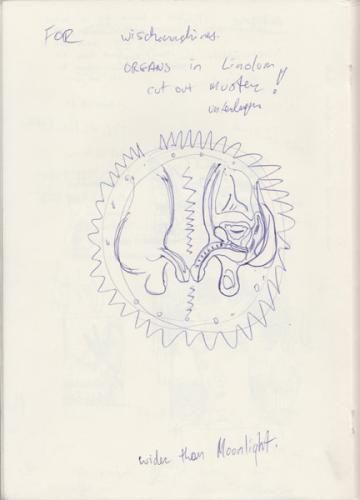 FOR
ORGANS in Linoleum
cut out Muster!
wider than Moonlight.